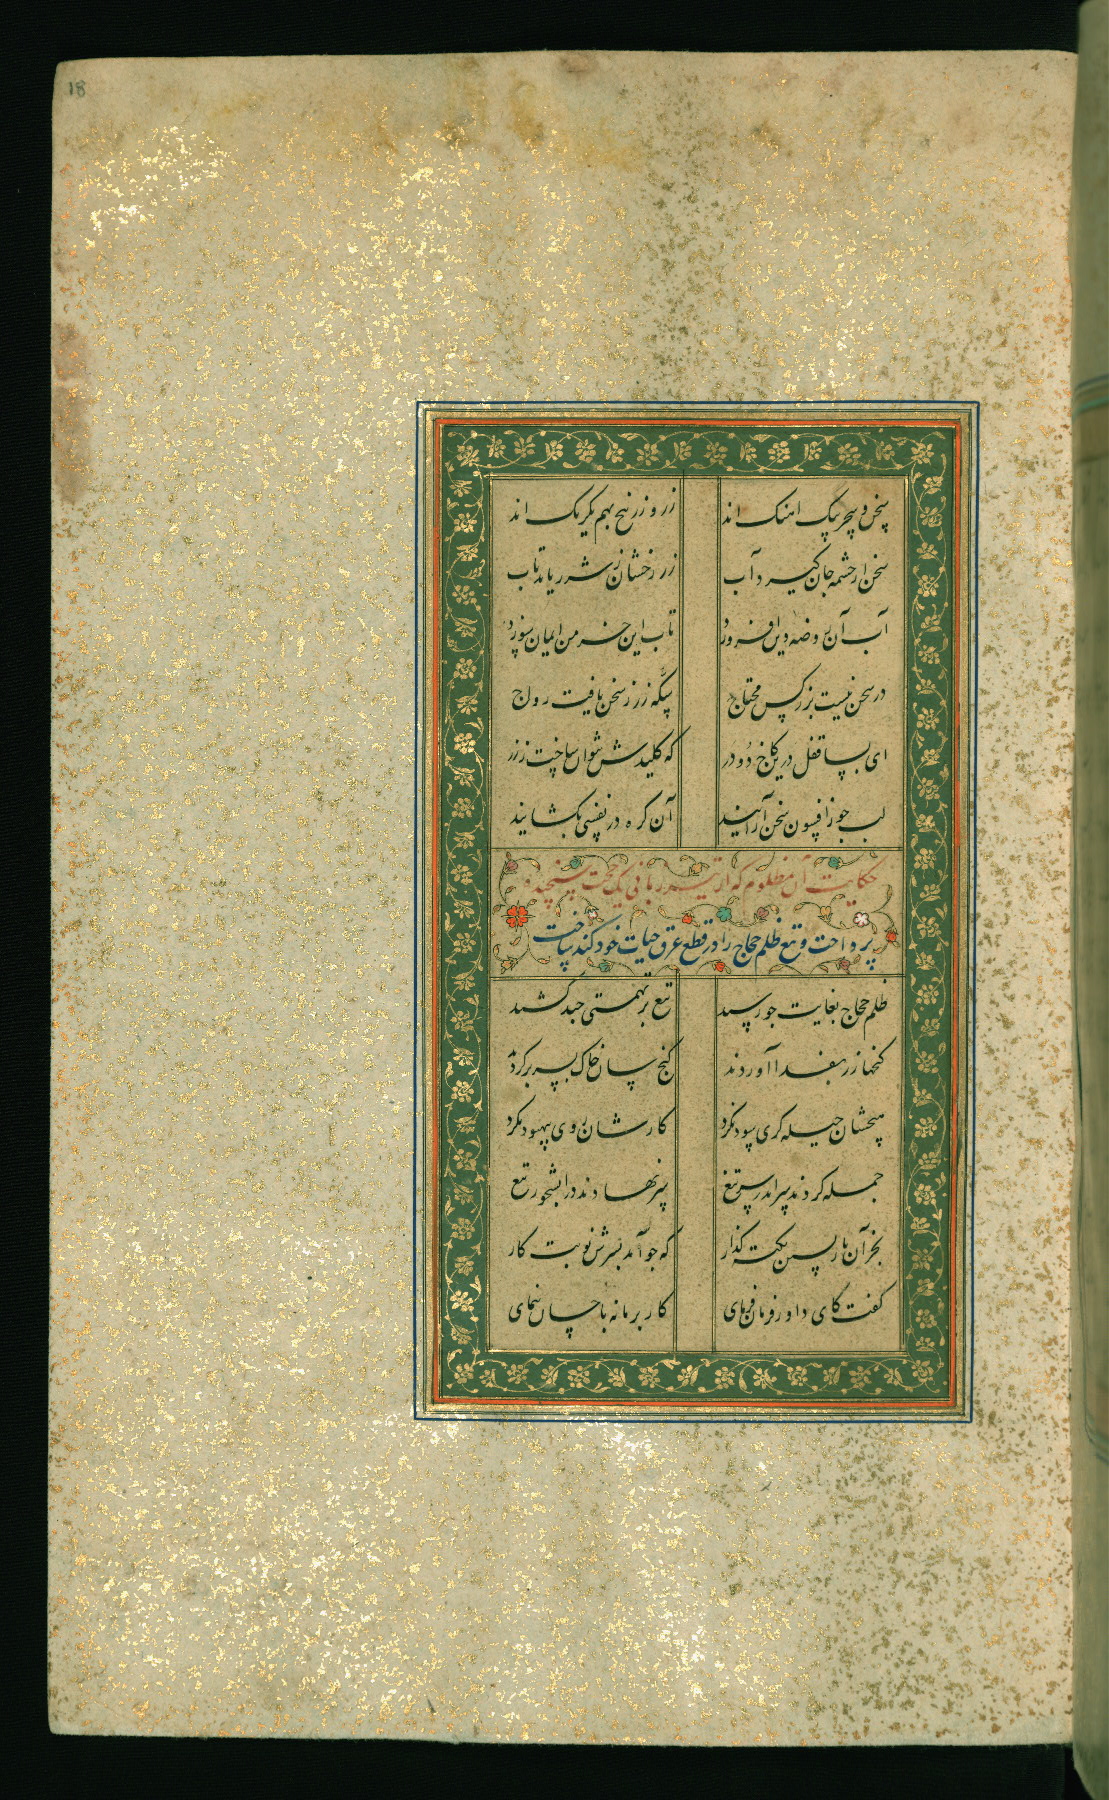 18
سخن و سحر بیک آهنک اند زر و زرنیخ بهم یکرنک اند
سخن از چشمه جان کیرد آب زر رخشان ز شرر یابد تاب
آب آن روضه دین افروزد تاب این خرمن ایمان سوزد
در سخن نیست بزر کس محتاج سکه زر ز سخن یافت رواج
ای بسا قفل درین کاخ دو در که کلیدش نتوان ساخت ز زر
لب چو ز افسون سخن آرایند آن کره در نفسی بکشایند
حکایت آن مظلوم که از تیز زبانی یکی حجت سنجیده
پرداخت و تیغ ظلم حجاج را در قطع عرق حیات خود کند ساخت
ظلم حجاج بغایت چو رسید تیغ بر تهمتی چند کشید
کنجها زر بفدا آوردند کنج سان خاک بسر بر کردند
هیچشان حیله کری سود نکرد کارشان روی ببهبود نکرد
جمله کردند سر اندر سر تیغ سر نهادند در آبشخور تیغ
بجز آن بازپسین نکته کذار که چو آمد بسرش نوبت کار
کفت کای داور فرمان فرمای کار بر ما نه باحسان بنمای